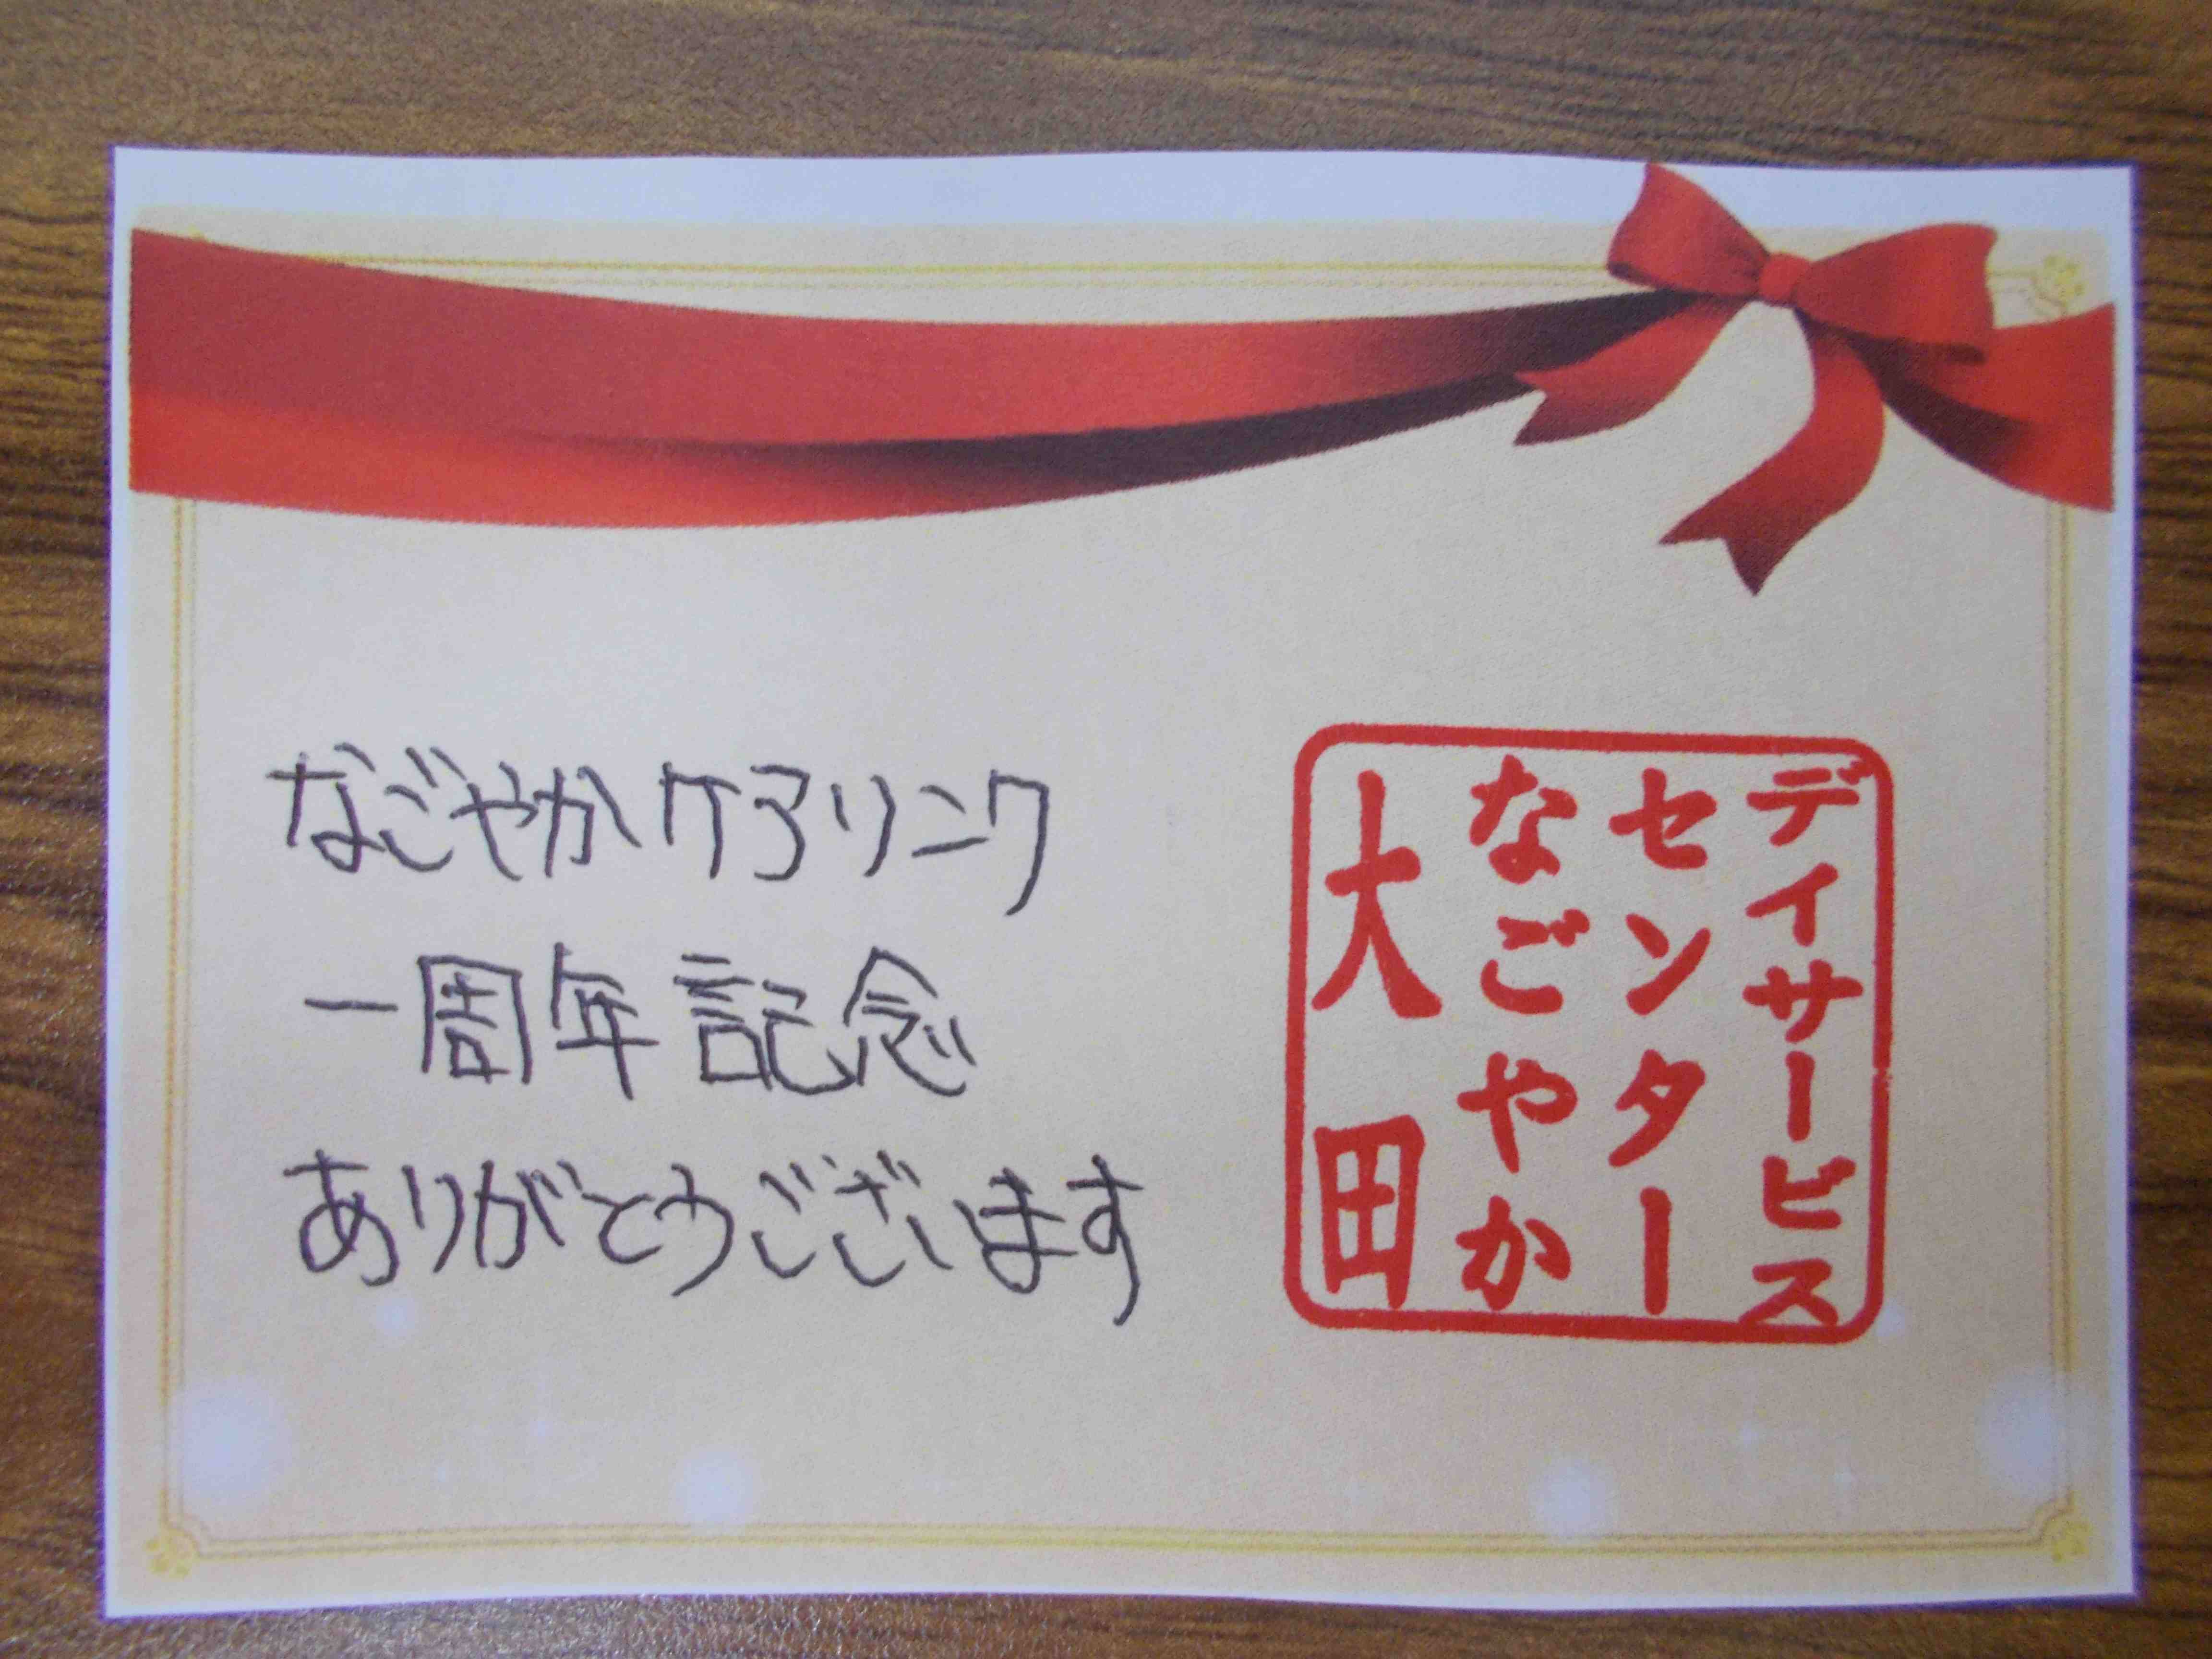 なごやかケアリンク
一周年記念
ありがとうございます
デイサービス
センター
なごやか
大田